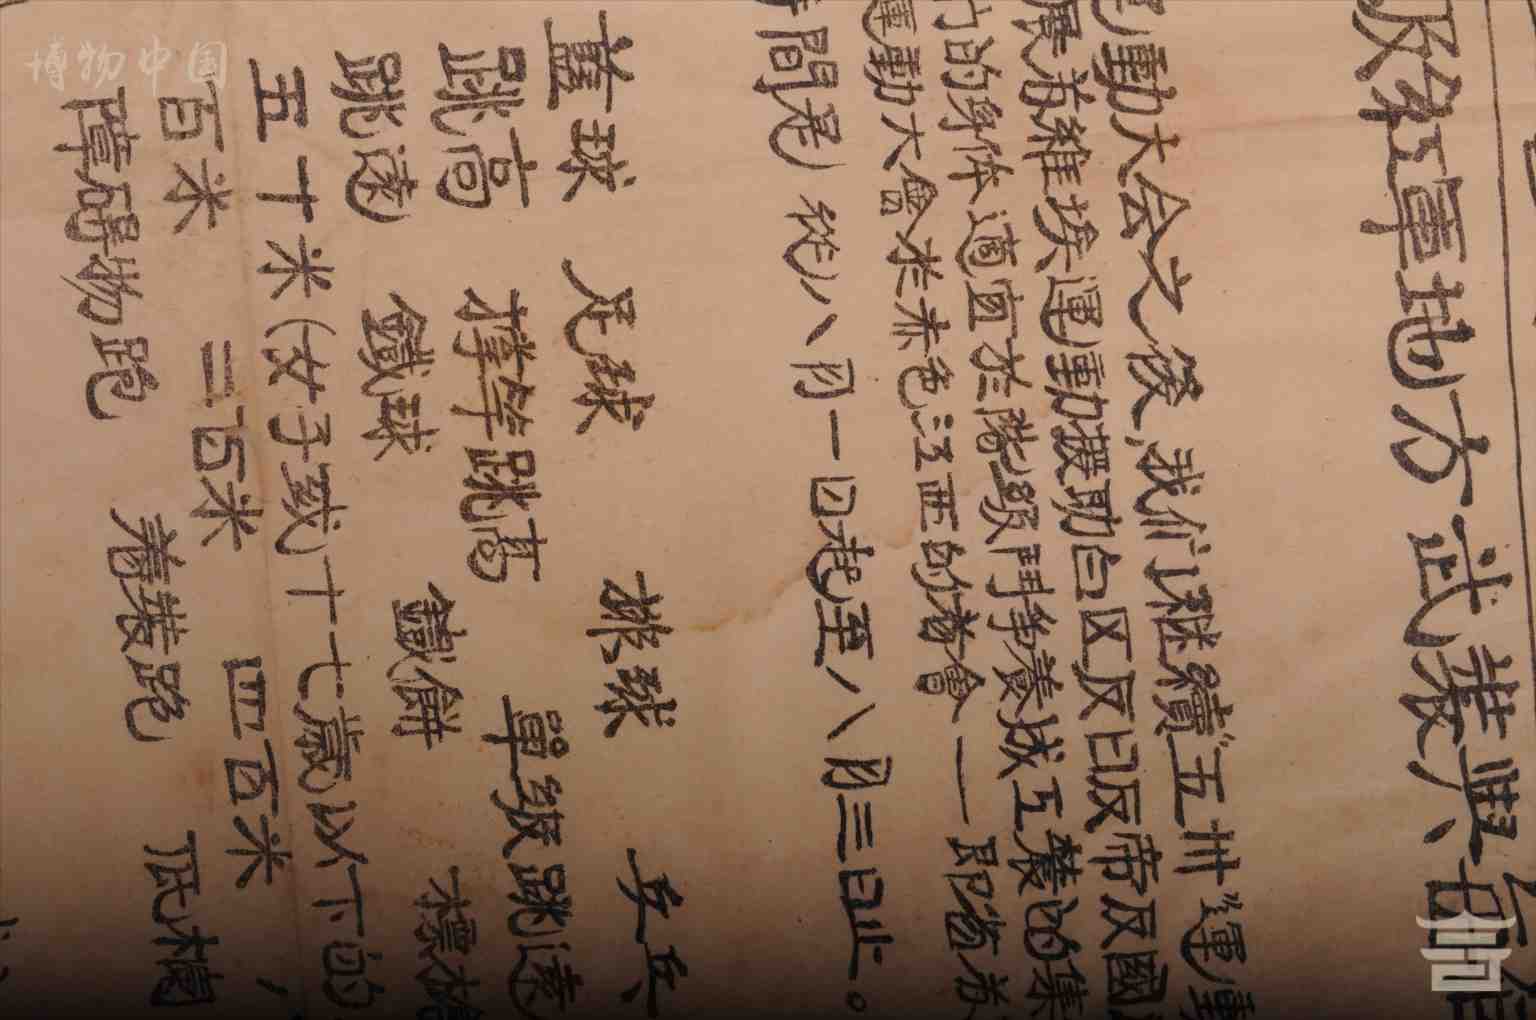 红軍地方武裝與
運動大会之後,我们継續“五卅”運動
展并維埃運動援助白区反日反帝反國
们的身体適宜於階級鬥争養成工農的集
運動大會於赤色江西的省會——
時間是)從八月一日起至八月三日止。
蓝球 足球 排球 乒乓
跳高 撑竿跳高 單級跳遠
跳遠 鐵球 鐵餅 標槍
五十米(女子或十七歲以下的
百米 二百米 四百米
障碍物跑 着裝跑 低欄
博物中国